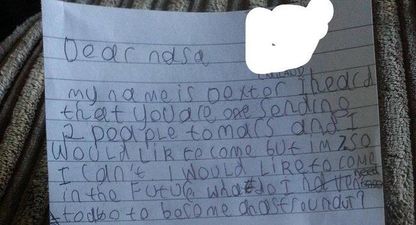 Dear nasa
my name is Dexter I heard
that you are sending
2 people to mars and I
would like to come but im 7 so
I can't I would like to come
in the future what do I need
to do to become an astrounaut?